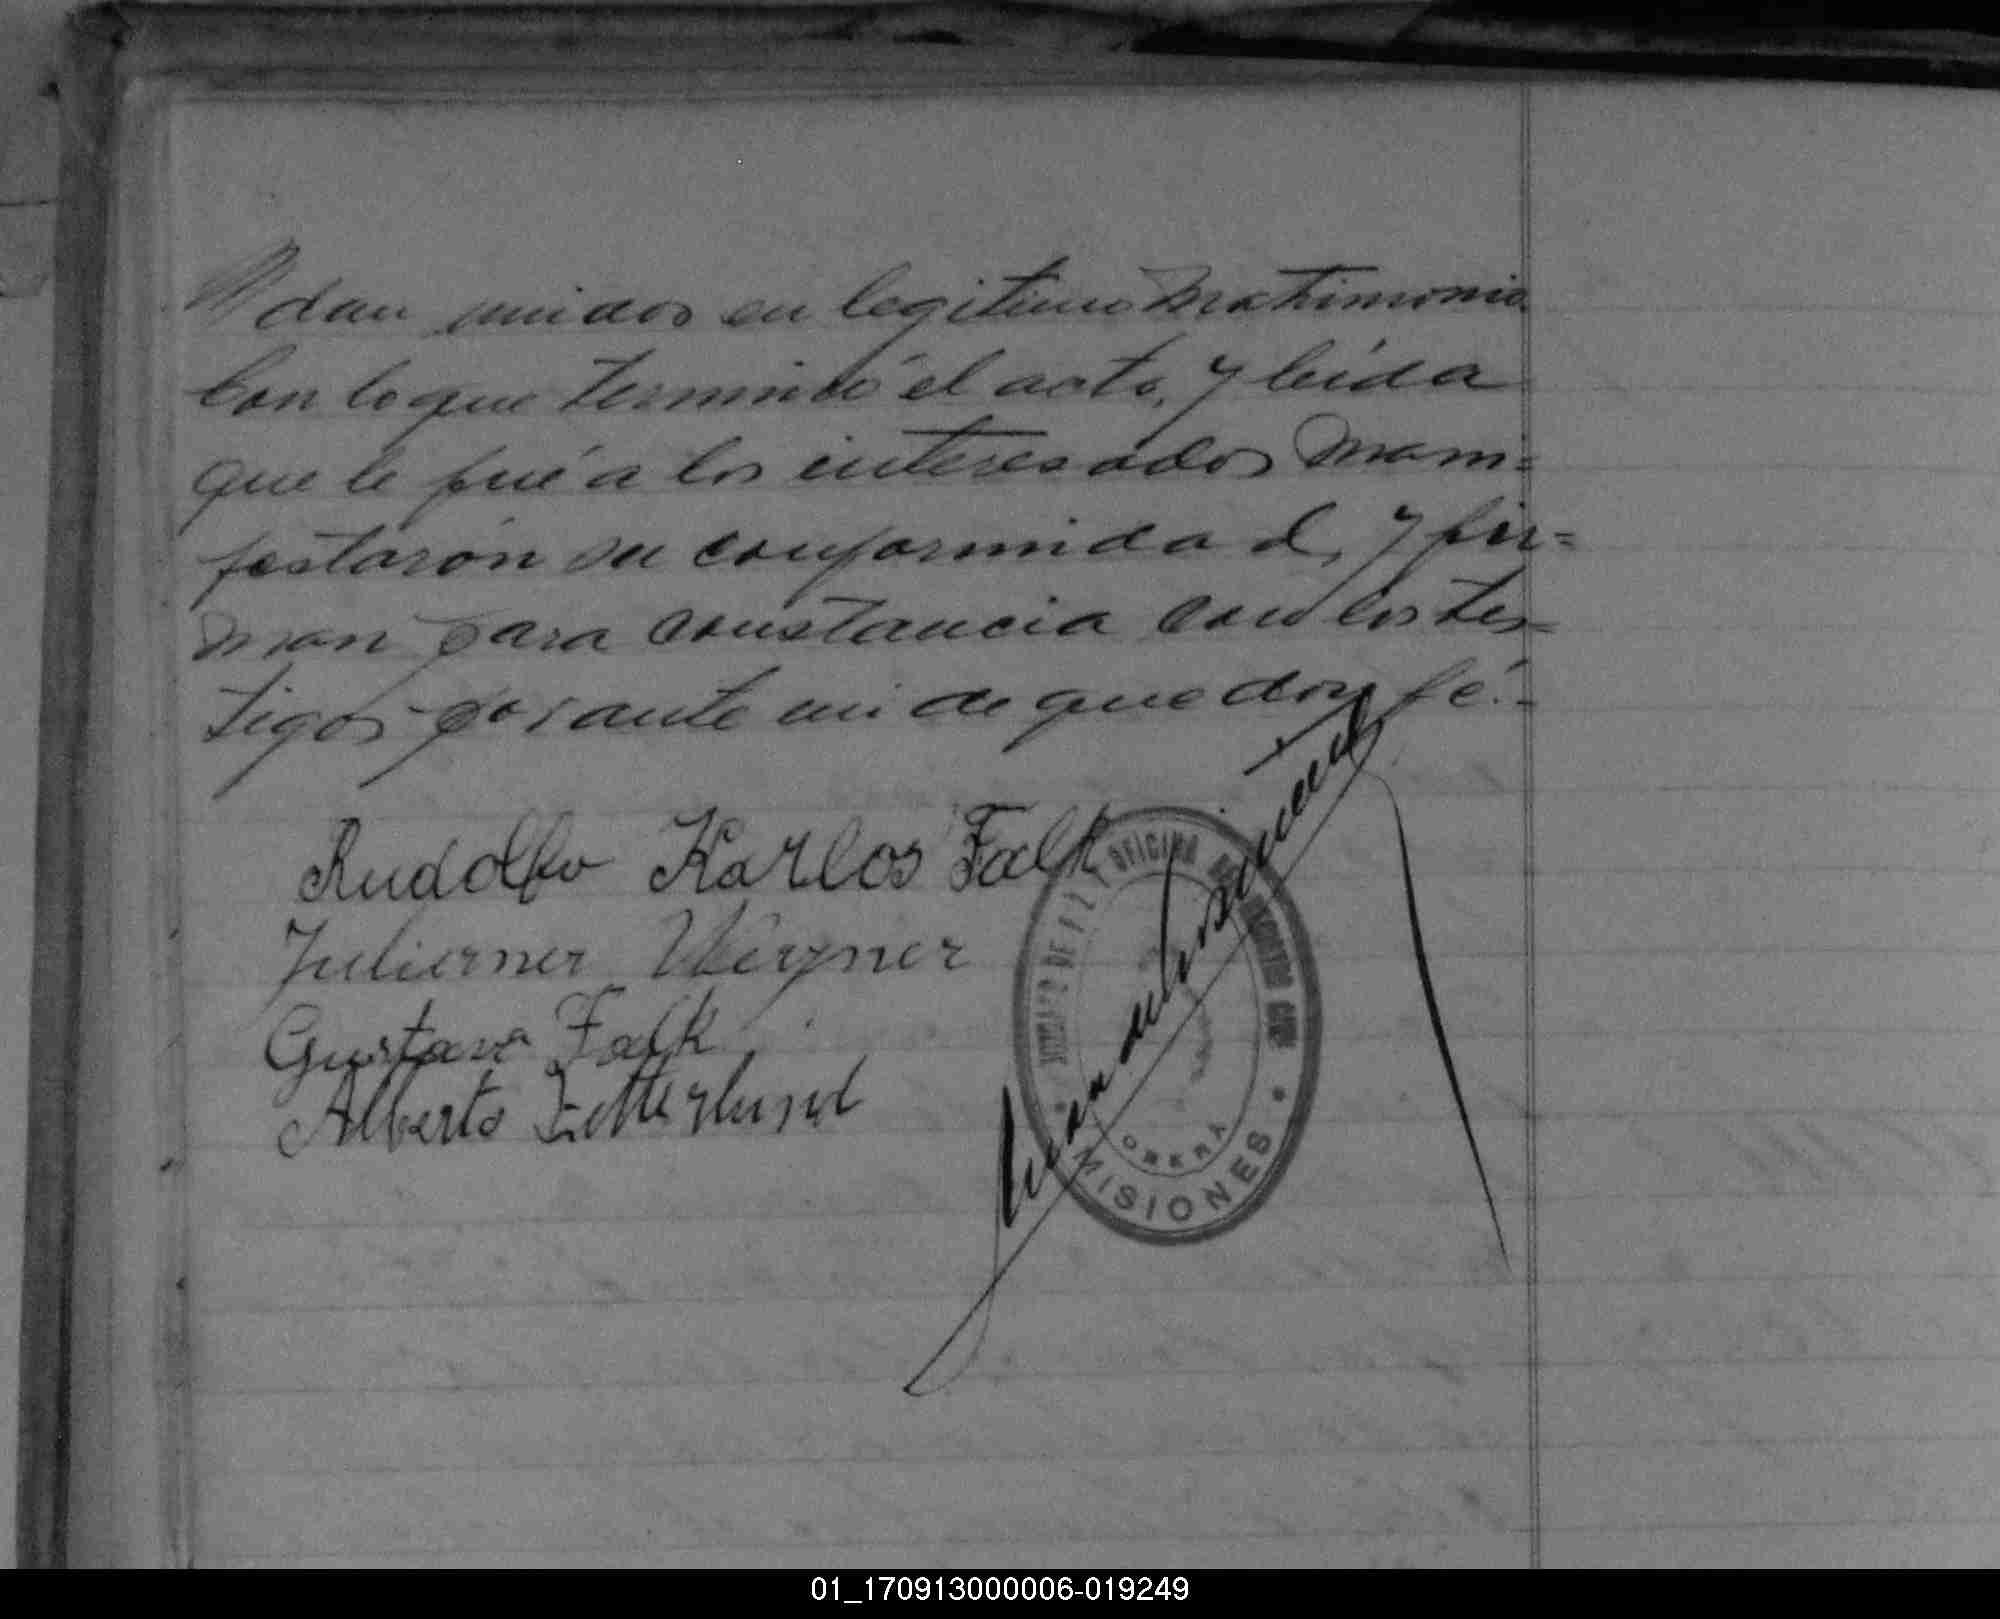 dan unidos en legitimo Matrimonio
Con lo que terminó el acto, y leida
que le fué a los interesados mani=
festarón su conformidad, y fir=
man para constancia con los tes=
tigos por ante mi de que doy fé.-
Rudolfo Karlos Falk
Gustavo Falk
Alberto Zetterlund
JUZGADO DE PAZ Y OFICINA DEL REGISTRO CIVIL
OBERÁ
MISIONES
01_170913000006-019249